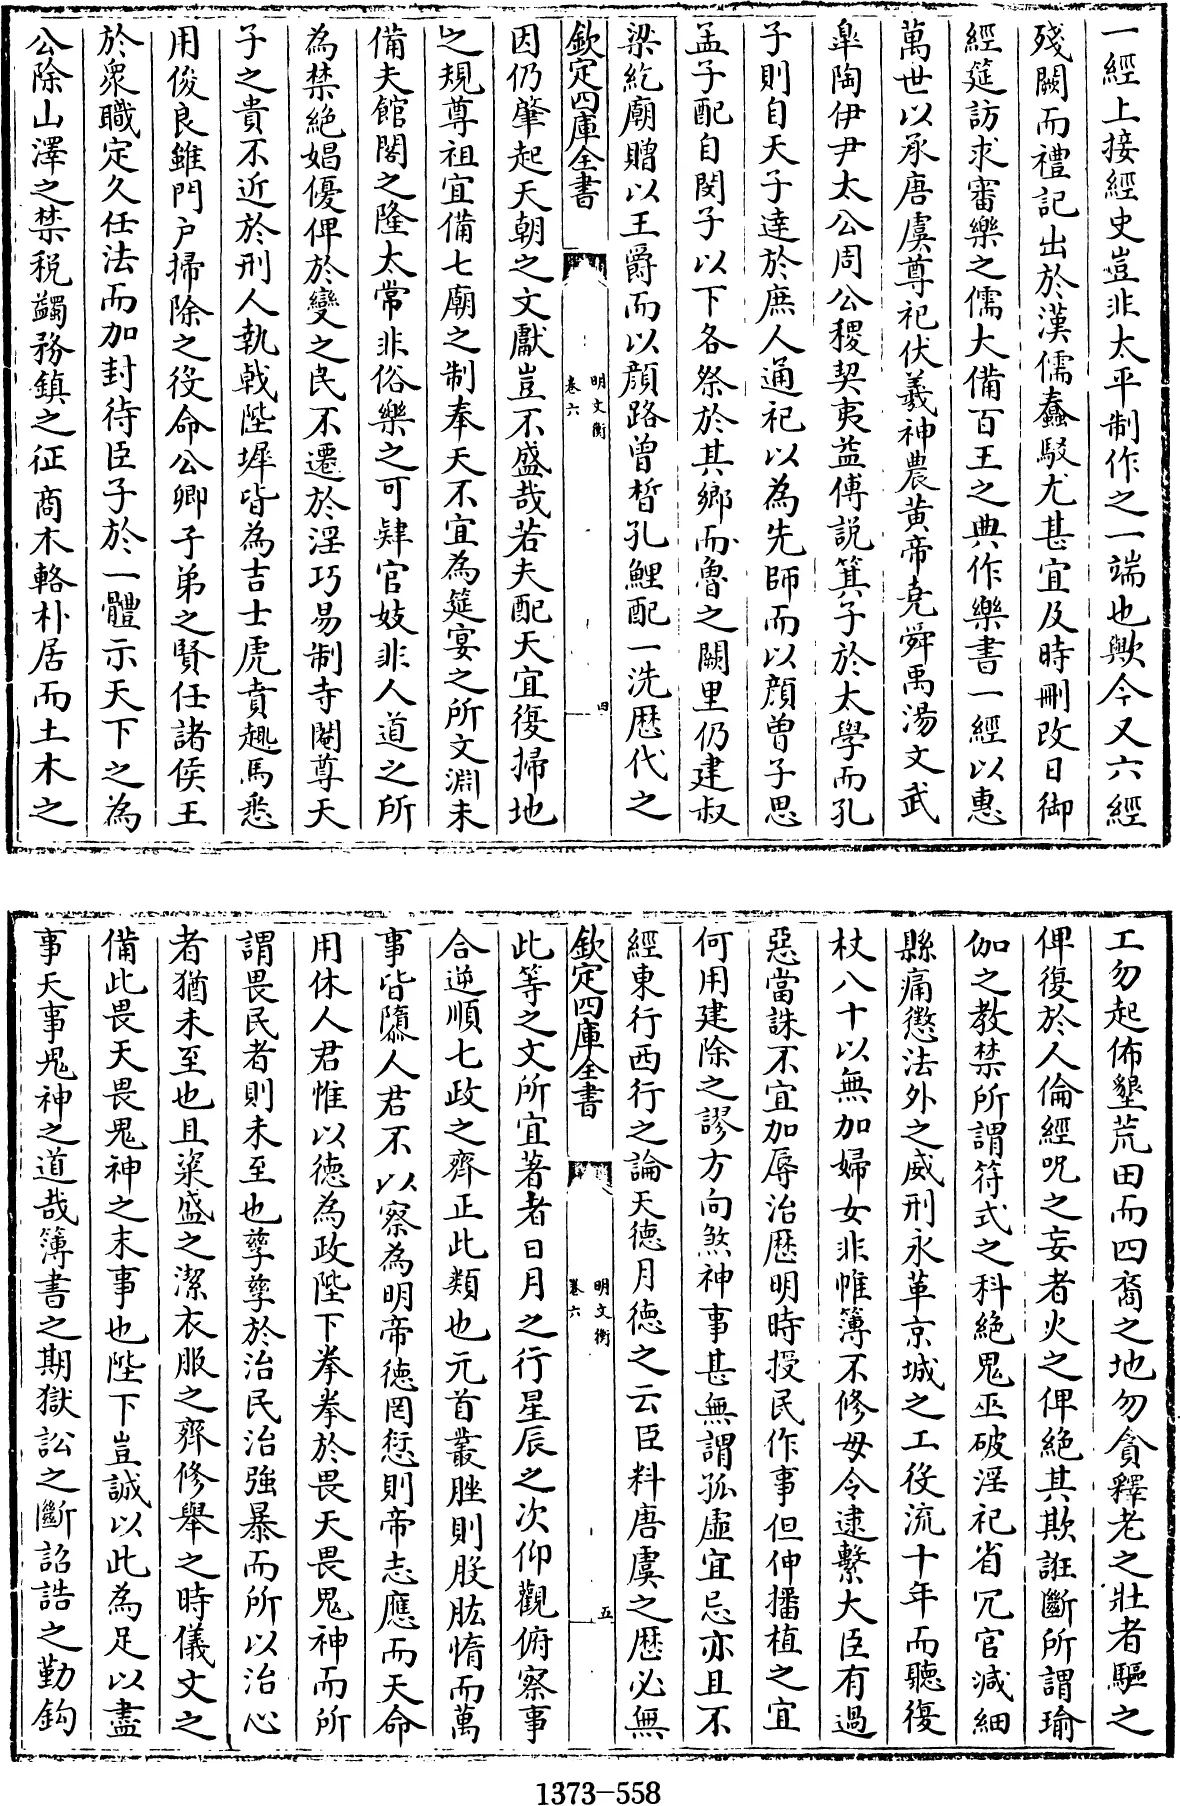 一經上接經史豈非太平制作之一端也歟今又六經
殘闕而禮記出於漢儒蠢駁尤甚宜及時刪改日御
經筵訪求審樂之儒大備百王之典作樂書一經以惠
萬世以承唐虞尊祀伏羲神農黄帝堯舜禹湯文武
臯陶伊尹太公周公稷契夷益傅說箕子於太學而孔
子則自天子達於庶人通祀以為先師而以顔曾子思
孟子配自閔子以下各祭於其鄉而魯之闕里仍建叔
梁紇廟贈以王爵而以顔路曾晳孔鯉配一洗歴代之
欽定四庫全書
明文衡
卷六
四
因仍肇起天朝之文獻豈不盛哉若夫配天宜復掃地
之規尊祖宜備七廟之制奉天不宜為筵宴之所文淵未
備夫館閣之隆太常非俗樂之可肄官妓非人道之所
為禁絶娼優俾於變之民不遷於淫巧易制寺閹尊天
子之貴不近於刑人執戟陛墀皆為吉士虎賁趣馬悉
用俊良雖門戶掃除之役命公卿子弟之賢任諸侯王
於衆職定久任法而加封待臣子於一體示天下之為
公除山澤之禁税蠲務鎮之征商木輅朴居而土木之
工勿起佈墾荒田而四裔之地勿貪釋老之壯者驅之
俾復於人倫經呪之妄者火之俾絶其欺誑斷所謂瑜
伽之教禁所謂符式之科絶鬼巫破淫祀省冗官減細
縣痛懲法外之威刑永革京城之工役流十年而聽復
杖八十以無加婦女非帷簿不修毋令逮繫大臣有過
惡當誅不宜加辱治歴明時授民作事但伸播植之宜
何用建除之謬方向煞神事甚無謂孤虛宜忌亦且不
經東行西行之論天德月德之云臣料唐虞之歴必無
欽定四庫全書
明文衡
卷六
五
此等之文所宜著者日月之行星辰之次仰觀俯察事
合逆順七政之齊正此類也元首叢脞則股肱惰而萬
事皆隳人君不以察為明帝德罔愆則帝志應而天命
用休人君惟以德為政陛下拳拳於畏天畏鬼神而所
謂畏民者則未至也孳孳於治民治強暴而所以治心
者猶未至也且粢盛之潔衣服之齊修舉之時儀文之
備此畏天畏鬼神之末事也陛下豈誠以此為足以盡
事天事鬼神之道哉簿書之期獄訟之斷詔誥之勤鈎
1373-558